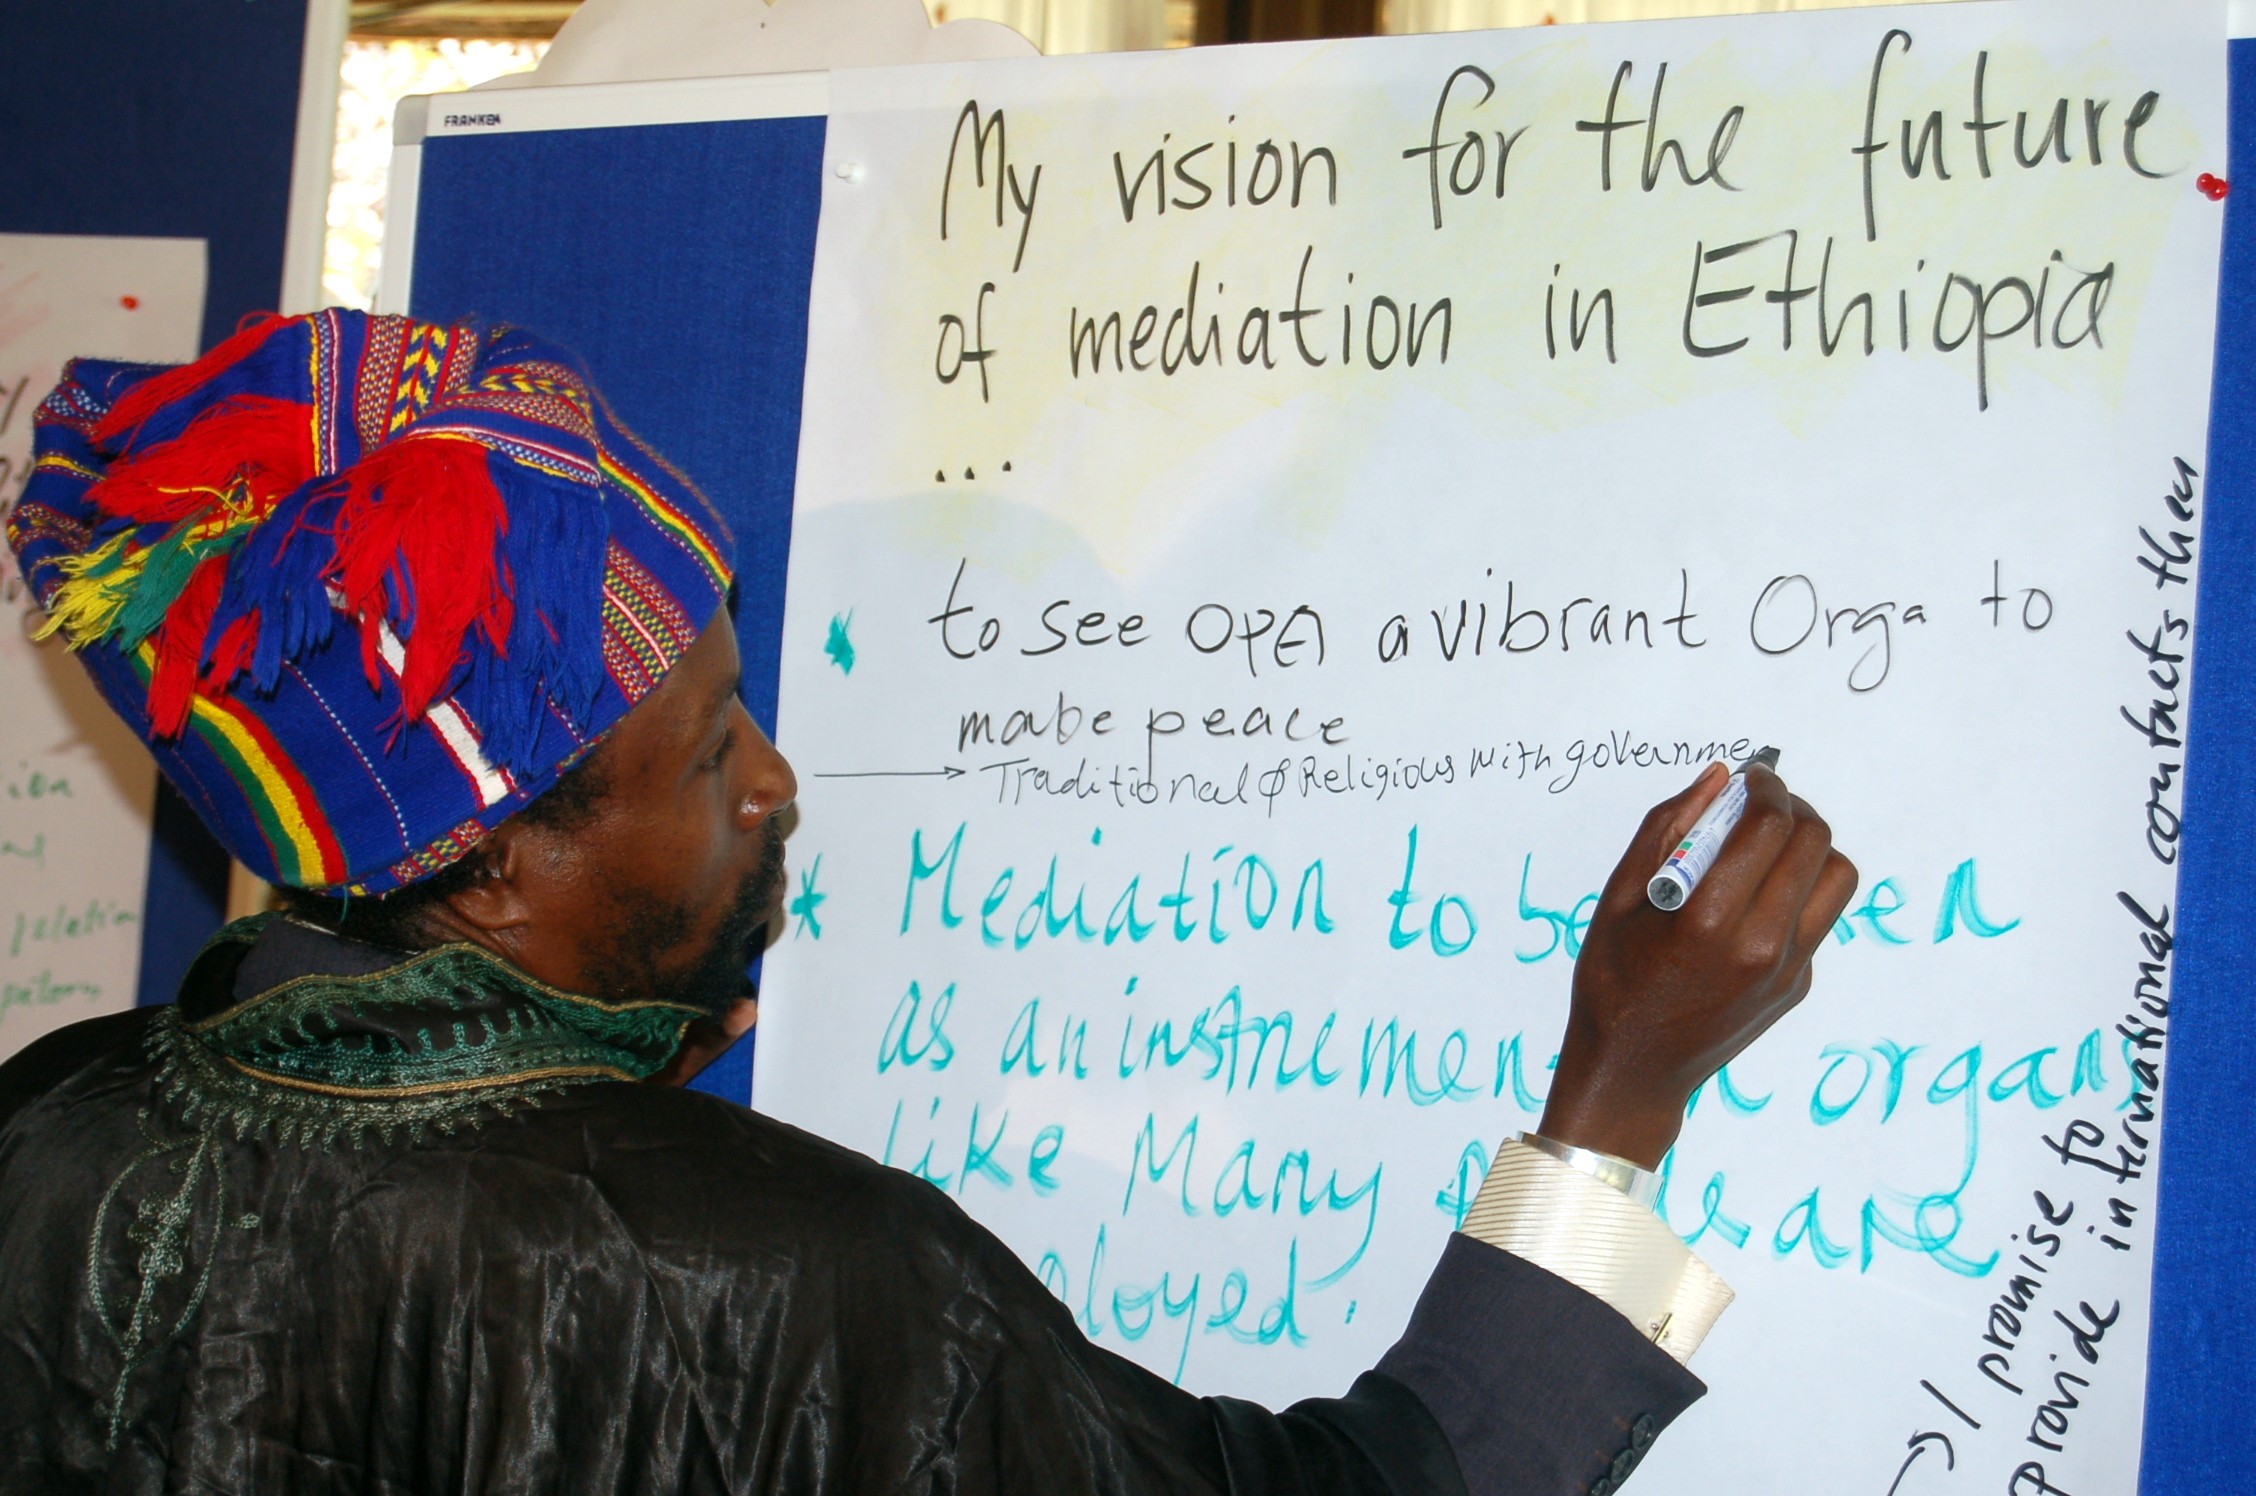 FRANKEN
My vision for the future
of mediation in Ethiopia
...
to see OPEA a vibrant Orga to
make peace
Traditional & Religious with governme
* Mediation to be
as an instrument organs
like Many are
ployed.
I promise to
provide international contacts then
relation